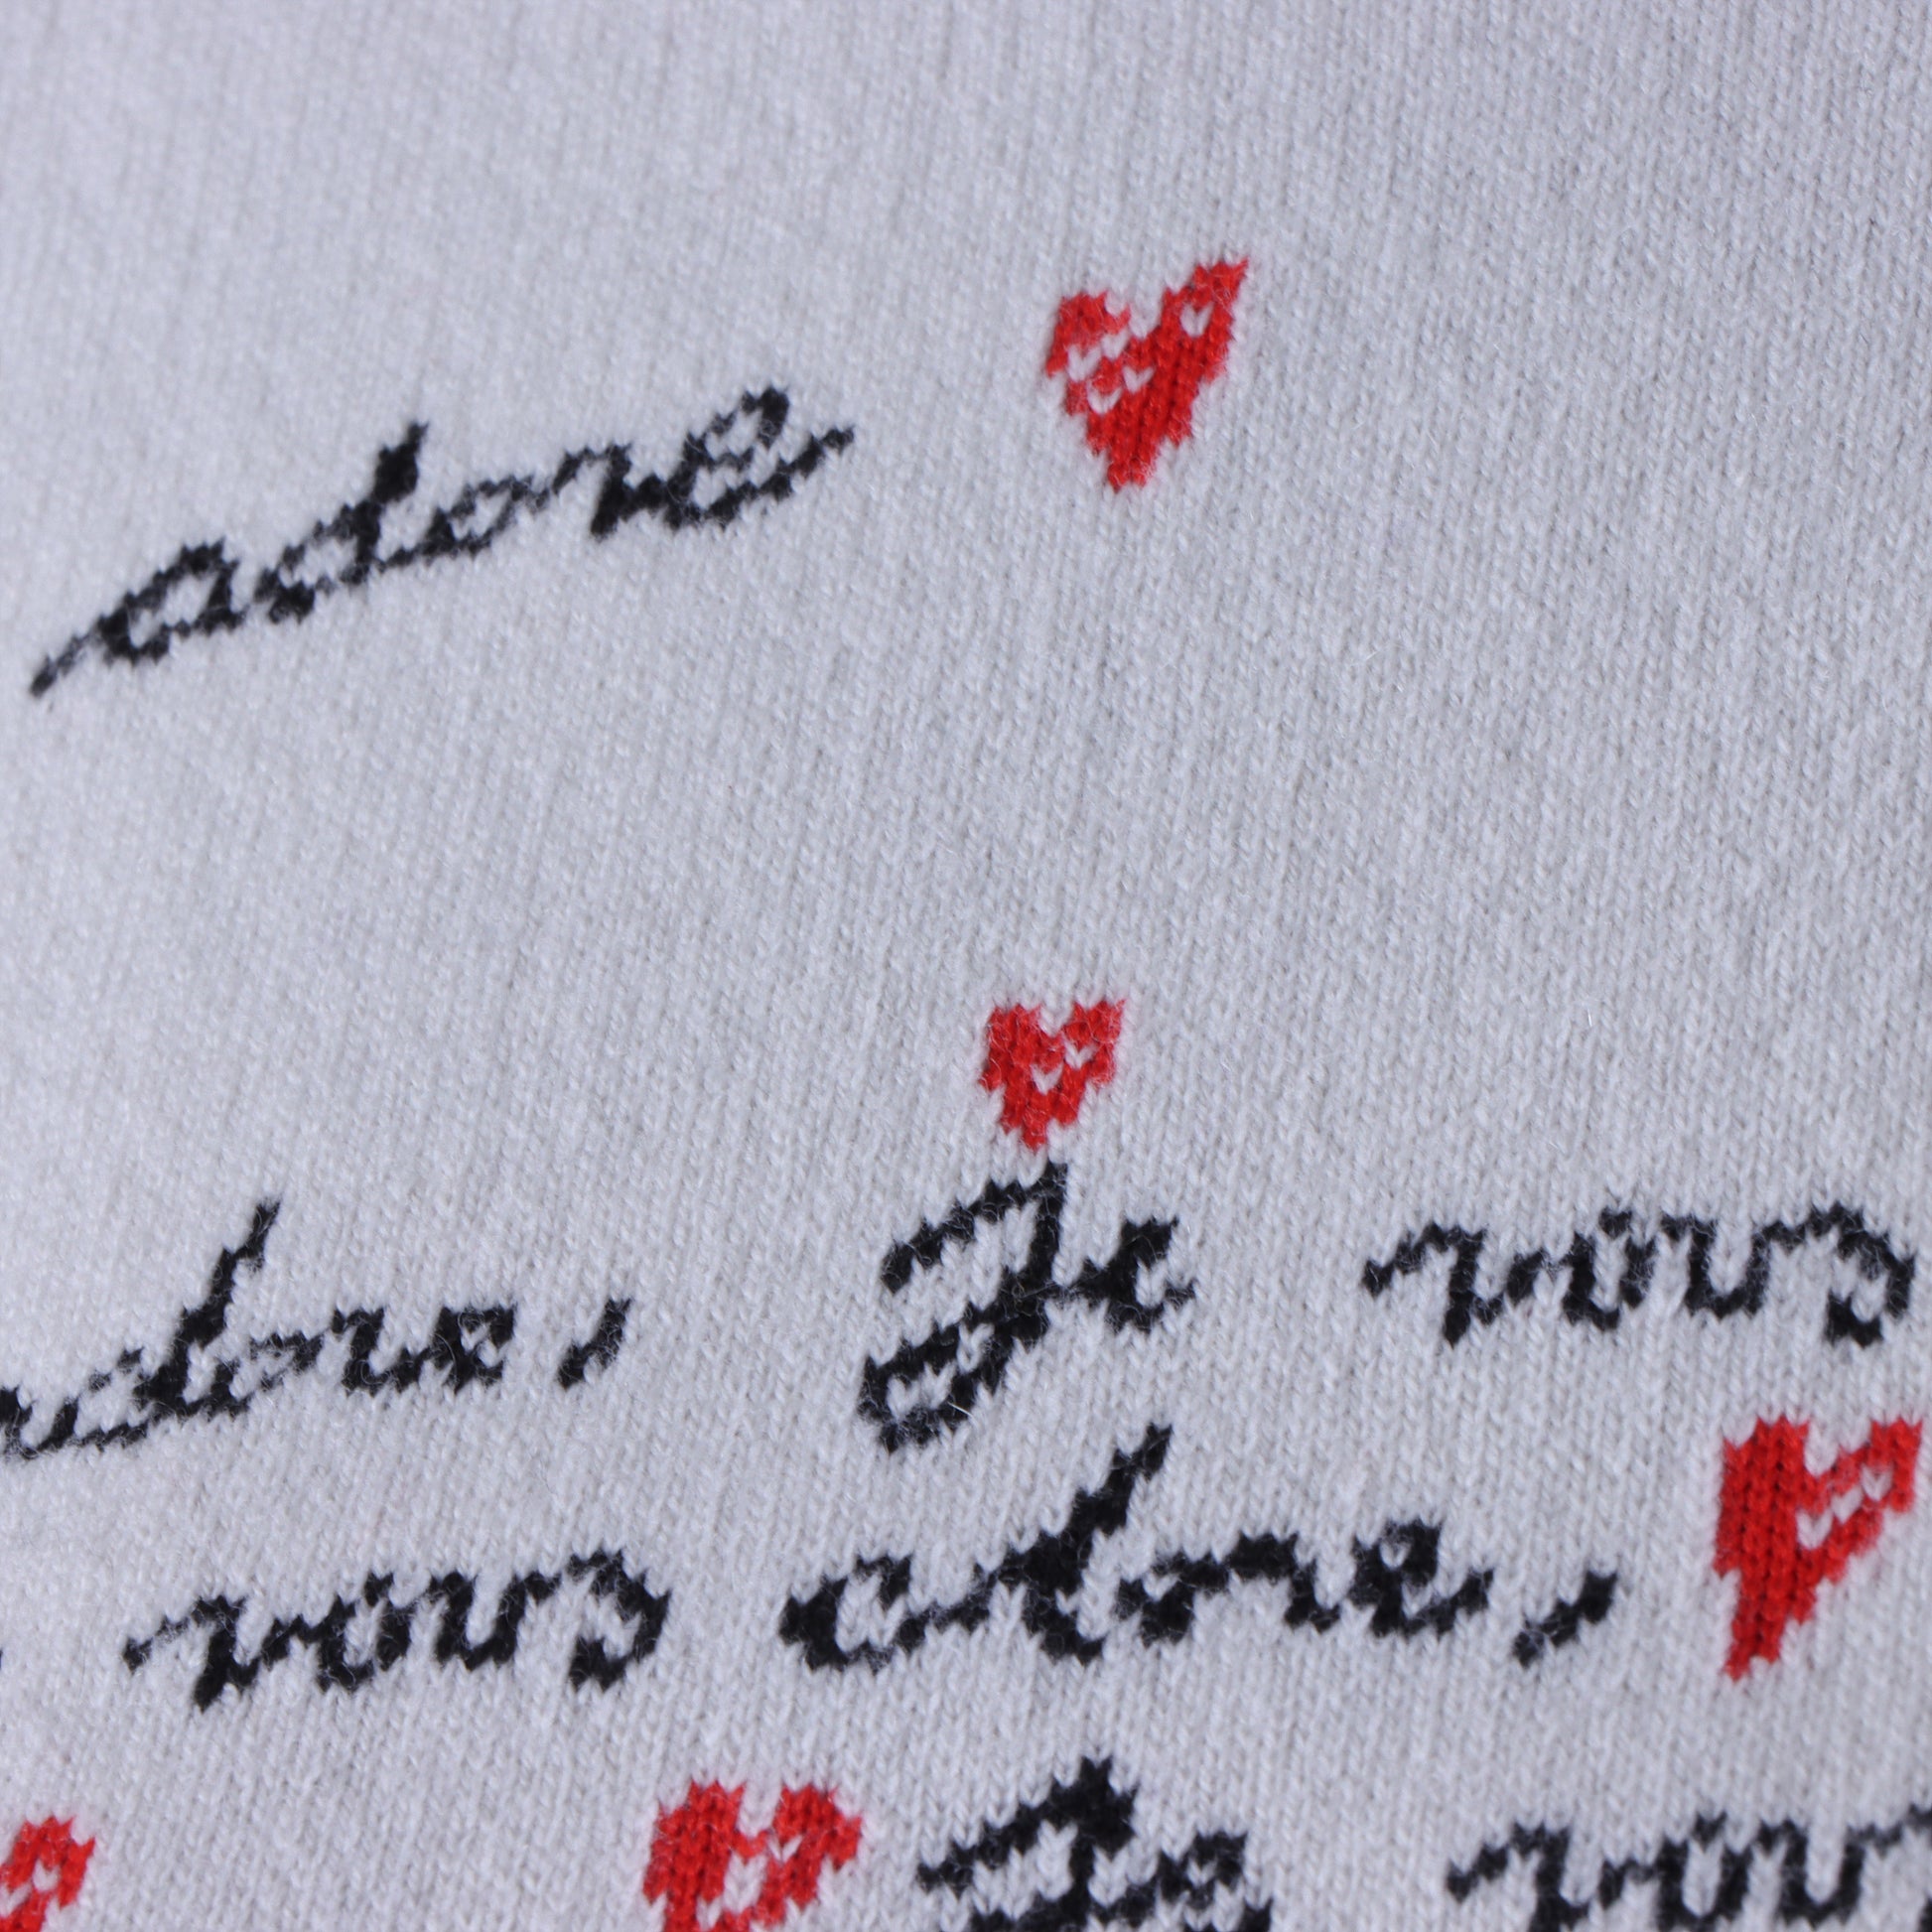 adore
adore, Je vous
vous adore,
Je vous